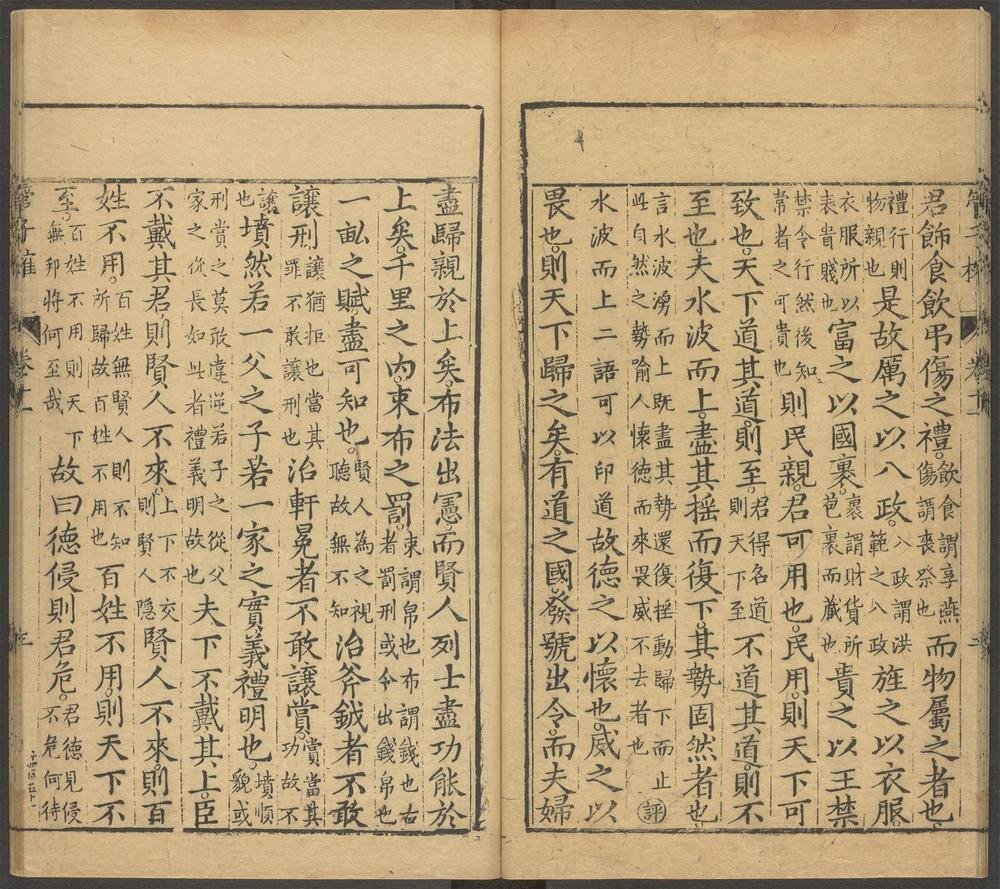 君飾食飲弔傷之禮飲食謂享燕傷謂喪祭也而物屬之者也
禮行則物親也是故厲之以八政八政謂洪範之八政旌之以衣服
衣服所以表貴賤也富之以國裹裹謂財貨所苞裹而藏也貴之以王禁
禁令行然後知常者之可貴也則民親君可用也民用則天下可
致也天下道其道則至君得名道則天下至不道其道則不
至也夫水波而上盡其摇而復下其勢固然者也
言水波湧而上既盡其勢還復摇動歸下而止此自然之勢喻人懷德而來畏威不去者也評
水波而上二語可以印道故德之以懷也威之以
畏也則天下歸之矣有道之國發號出令而夫婦
盡歸親於上矣布法出憲而賢人列士盡功能於
上矣千里之內束布之罰束謂帛也布謂錢也右者罰刑或令出錢帛也
一畆之賦盡可知也賢人為之視聽故無不知治斧鉞者不敢
讓刑讓猶拒也當其罪不敢讓刑也治軒冕者不敢讓賞賞當其功故不
讓也墳然若一父之子若一家之實義禮明也墳順貌或
刑賞之莫敢違逆若子之從父家之從長如此者禮義明故也夫下不戴其上臣
不戴其君則賢人不來上下不交則賢人隱賢人不來則百
姓不用百姓無賢人則不知所歸故百姓不用也百姓不用則天下不
至百姓不用則天下無邦將何至哉故曰德侵則君危君德見侵不危何待